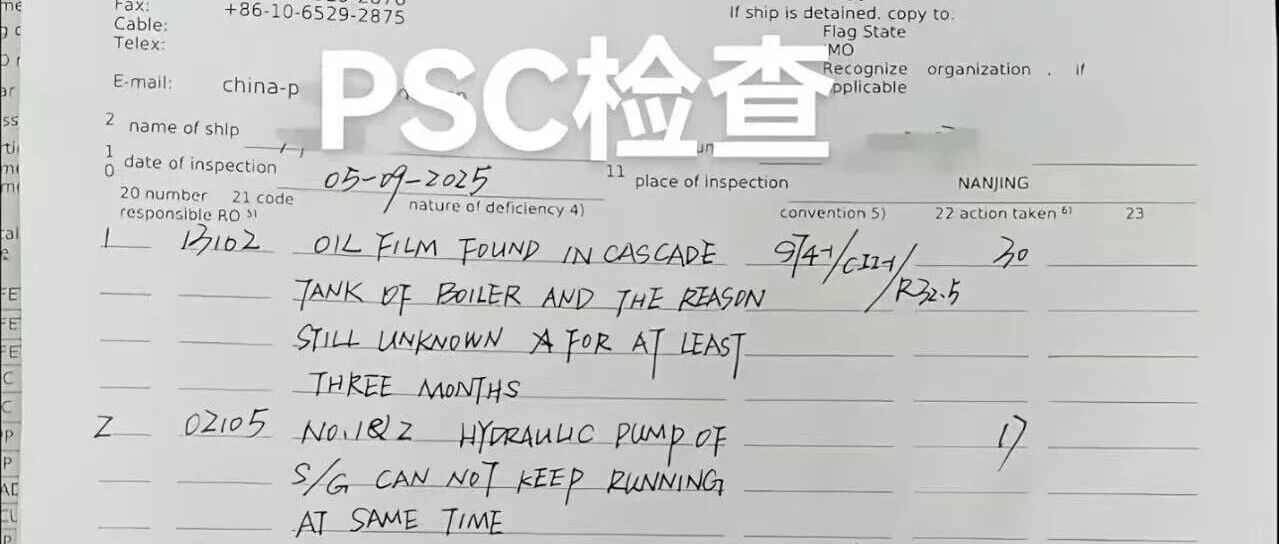 Fax:
+86-10-6529-2875
Cable:
Telex:
E-mail: china-p
If ship is detained. copy to:
Flag State
MO
Recognize organization . if
applicable
PSC检查
2 name of ship
10 date of inspection 05-09-2025 11 place of inspection NANJING
20 number 21 code nature of deficiency 4) convention 5) 22 action taken 6) 23
responsible RO 5)
1 13102 OIL FILM FOUND IN CASCADE S74-1/CII-1/ 30
TANK OF BOILER AND THE REASON /R32.5
STILL UNKNOWN FOR AT LEAST
THREE MONTHS
2 02105 NO.1&2 HYDRAULIC PUMP OF 17
S/G CAN NOT KEEP RUNNING
AT SAME TIME